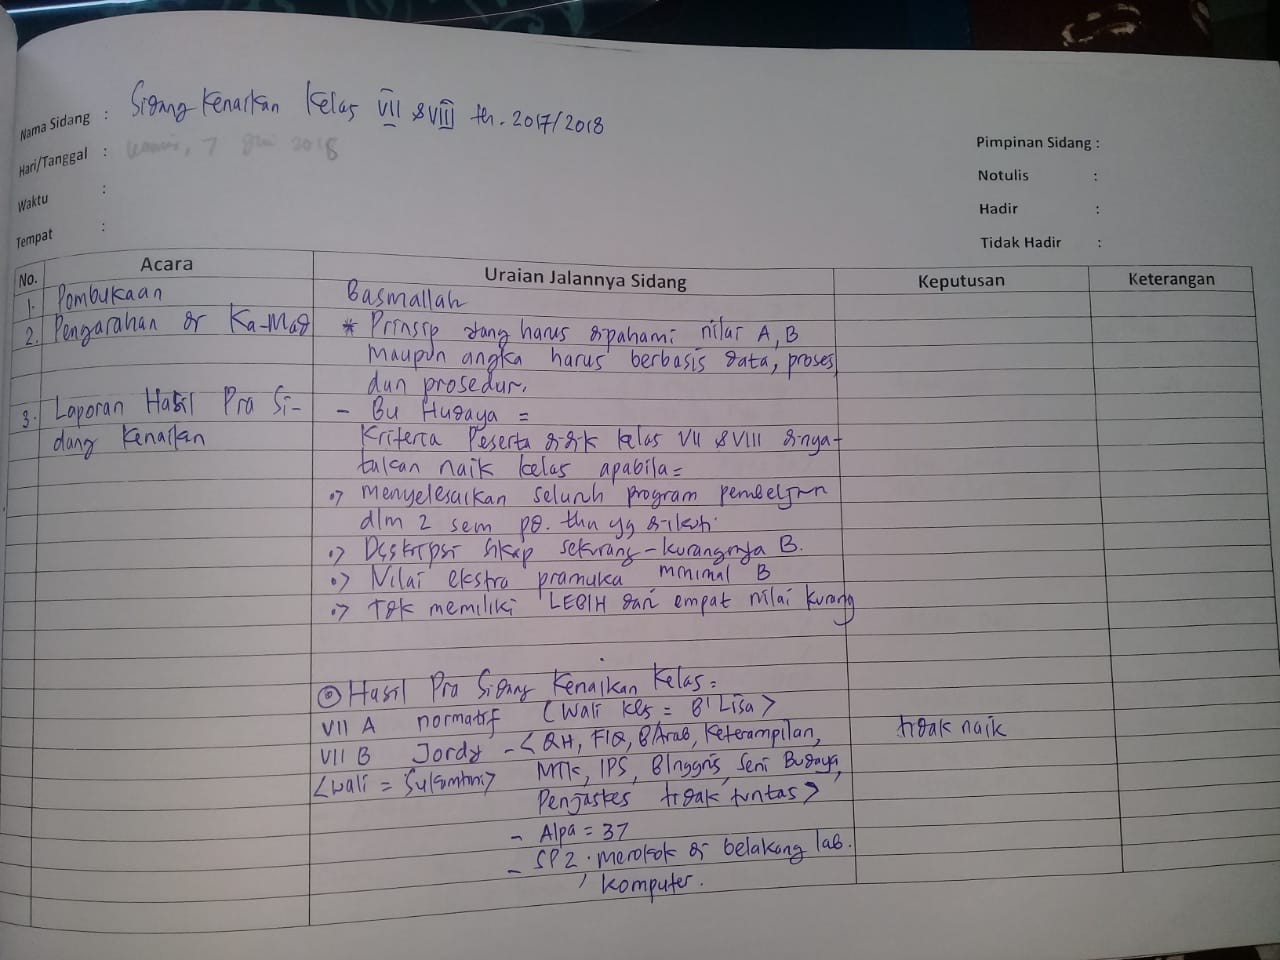 Nama Sidang : Sidang Kenaikan Kelas VII & VIII th. 2017/2018
Hari/Tanggal : Kamis, 7 Juni 2018
Waktu :
Tempat :
Pimpinan Sidang :
Notulis :
Hadir :
Tidak Hadir :
No. Acara Uraian Jalannya Sidang Keputusan Keterangan
1. Pembukaan Basmallah
2. Pengarahan dr Ka-Mad * Prinsip yang harus dipahami nilai A, B
maupun angka harus berbasis data, proses
dan prosedur.
3. Laporan Hasil Pra Si- - Bu Hudaya =
dang Kenaikan Kriteria Peserta didik kelas VII & VIII dinya-
takan naik kelas apabila =
•> menyelesaikan seluruh program pembeljrn
dlm 2 sem pd. thn yg diikuti
•> Deskripsi sikap sekurang-kurangnya B.
•> Nilai ekstra pramuka minimal B
•> tdk memiliki LEBIH dari empat nilai kurang
Hasil Pra Sidang Kenaikan Kelas =
VII A normatif (wali kls = B' Lisa>
VII B Jordy - <QH, FIQ, B Arab, Keterampilan, tidak naik
<wali = > MTK, IPS, B Inggris, Seni Budaya,
Penjaskes tidak tuntas>
- Alpa = 37
- SP2 . merokok di belakang lab.
komputer.